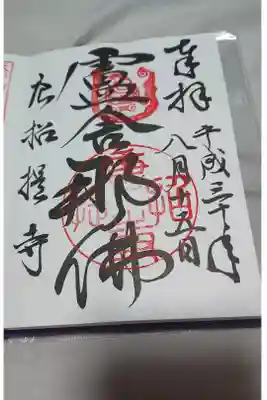 奉拝
平成三十年
八月十日
盧舎那佛
唐招提寺